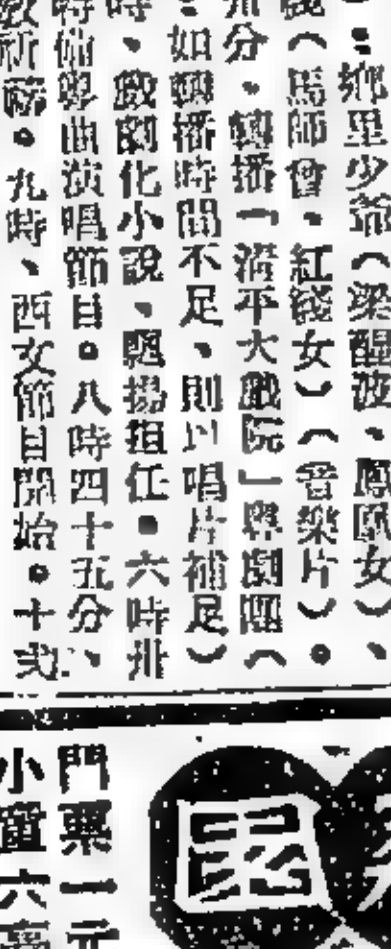 ：鄉里少爺（梁醒波、鳳凰女）、
錢（馬師曾、紅綫女）（音樂片）。
卅分、轉播「清平大戲院」粵劇團（
：如轉播時間不足、則以唱片補足）
時、戲劇化小說、颺揚担任。六時卅
特備粵曲演唱節目。八時四十五分、
祈禱。九時、西文節目開始。十弍
國
門票一元
小童六毫